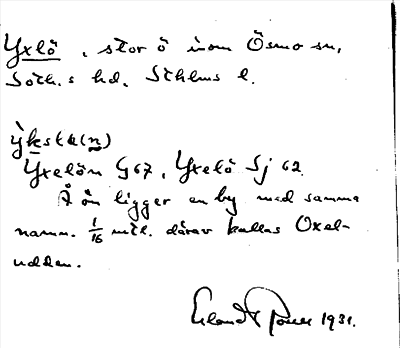 Yxlö, stor ö inom Ösmo sn,
Soth.s hd, Sthlms l.
ỳkstə(n)
Yxelön G 67, Yxelö Sj 62.
Å ön ligger en by med samma
namn. 1/16 mil. därav kallas Oxel-
udden.
Erland 1931.